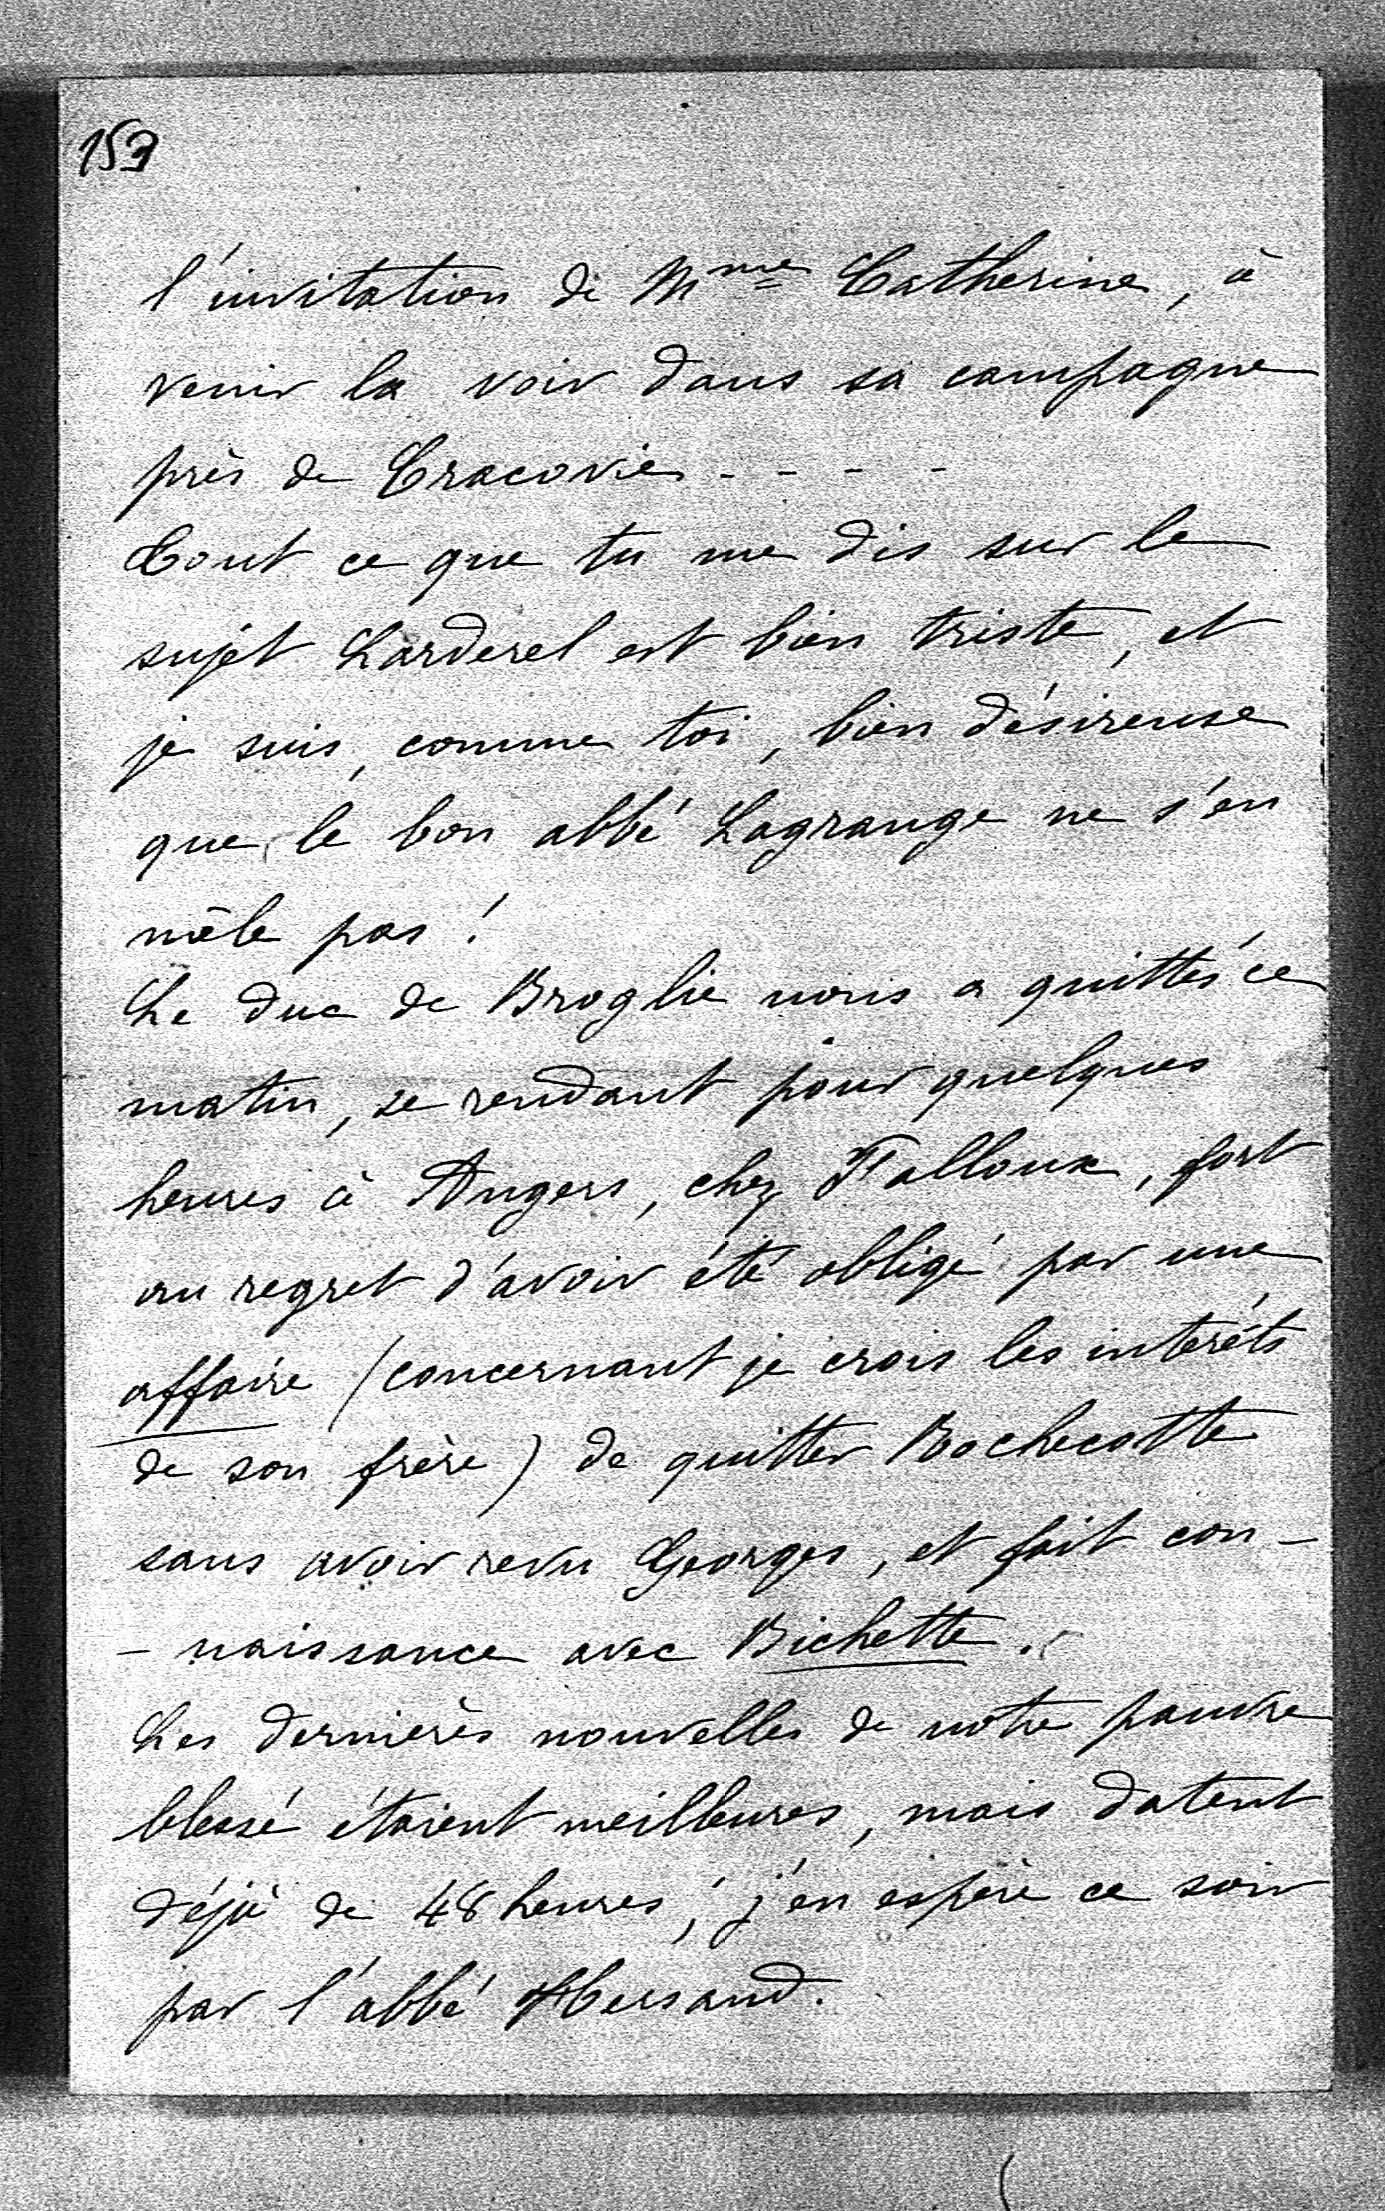 153
l'invitation de Mme Catherine, à
venir la voir dans sa campagne
près de Cracovie - - - -
Tout ce que tu me dis sur le
sujet Larderel est bien triste, et
je suis, comme toi, bien désireuse
que le bon abbé Lagrange ne s'en
mêle pas !
Le duc de Broglie nous a quittés ce
matin, se rendant pour quelques
heures à Angers, chez Falloux, fort
au regret d'avoir été obligé par une
affaire (concernant je crois les intérêts
de son frère) de quitter Rochecotte
sans avoir revu Georges, et fait con-
- naissance avec Bichette.
Les dernières nouvelles de notre pauvre
blessé étaient meilleures, mais datent
déjà de 48 heures ; j'en espère ce soir
par l'abbé